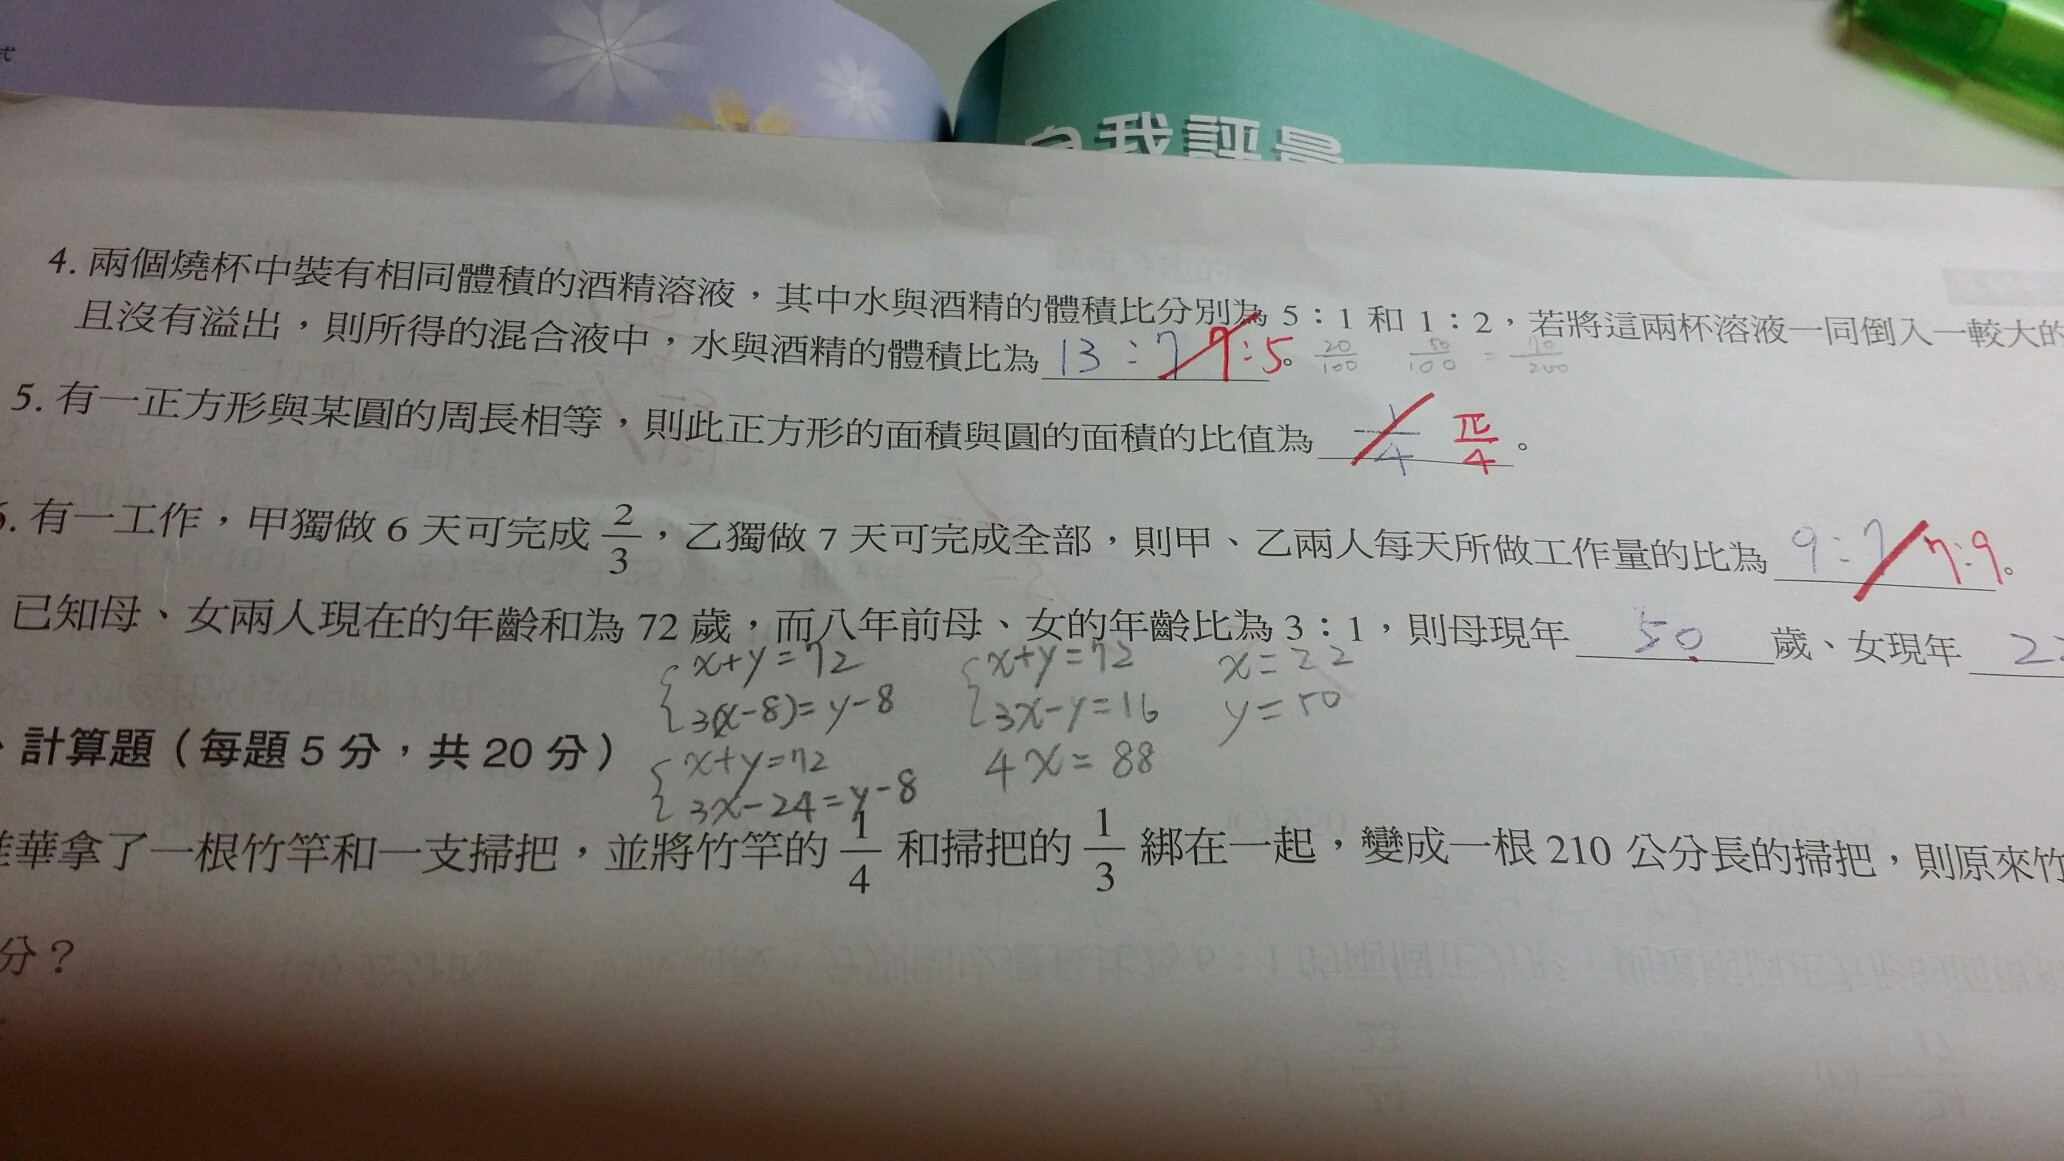 式
自我評量
4. 兩個燒杯中裝有相同體積的酒精溶液，其中水與酒精的體積比分別為 5：1 和 1：2，若將這兩杯溶液一同倒入一較大的
且沒有溢出，則所得的混合液中，水與酒精的體積比為 13：7 9：5。 20/100 50/100 = 70/200
5. 有一正方形與某圓的周長相等，則此正方形的面積與圓的面積的比值為 1/4 π/4 。
6. 有一工作，甲獨做 6 天可完成 2/3，乙獨做 7 天可完成全部，則甲、乙兩人每天所做工作量的比為 9：7 7：9。
已知母、女兩人現在的年齡和為 72 歲，而八年前母、女的年齡比為 3：1，則母現年 50 歲、女現年 22
x+y=72 x+y=72 x=22
3(x-8)=y-8 3x-y=16 y=50
、計算題（每題 5 分，共 20 分） x+y=72 4x=88
3x-24=y-8
華拿了一根竹竿和一支掃把，並將竹竿的 1/4 和掃把的 1/3 綁在一起，變成一根 210 公分長的掃把，則原來竹
分？